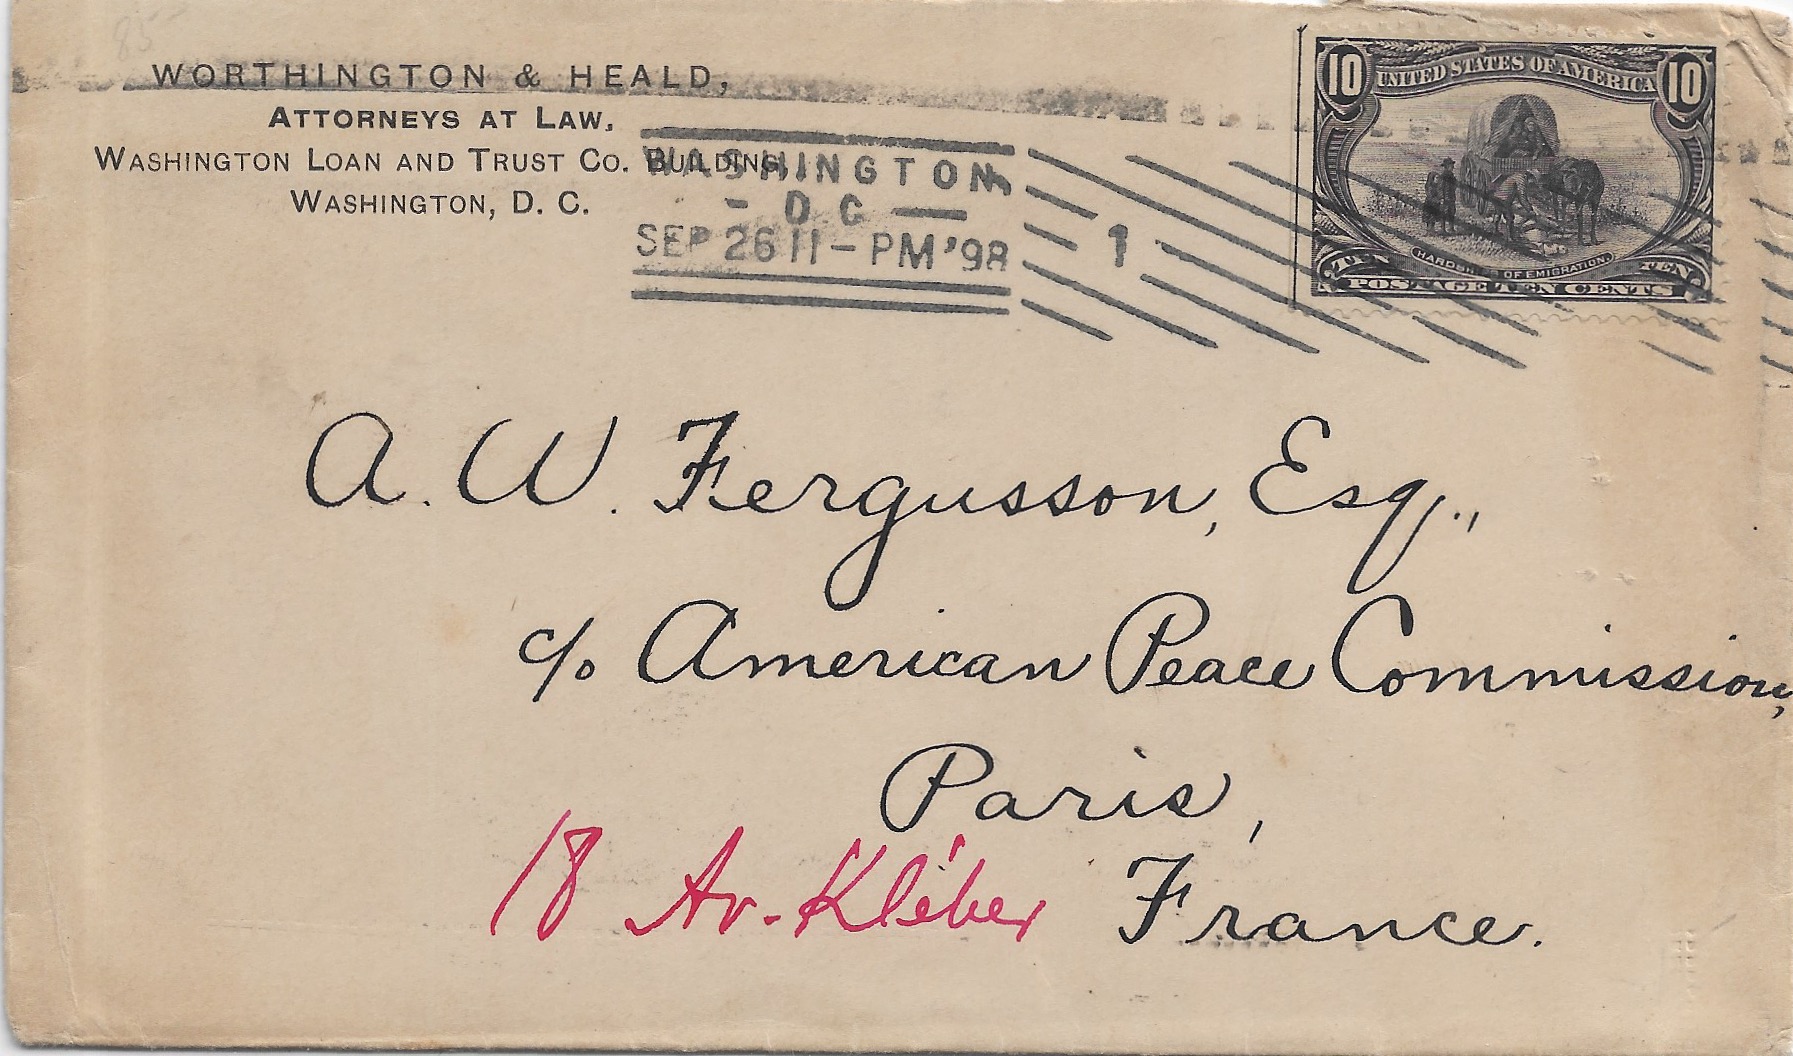 85
WORTHINGTON & HEALD,
ATTORNEYS AT LAW,
WASHINGTON LOAN AND TRUST CO. BUILDING,
WASHINGTON, D. C.
WASHINGTON
- D C -
SEP 26 11-PM '98
1
10 UNITED STATES OF AMERICA 10
HARDSHIPS OF EMIGRATION.
TEN TEN
POSTAGE TEN CENTS
A. W. Fergusson, Esq.,
c/o American Peace Commission,
Paris,
18 Av. Kléber France.